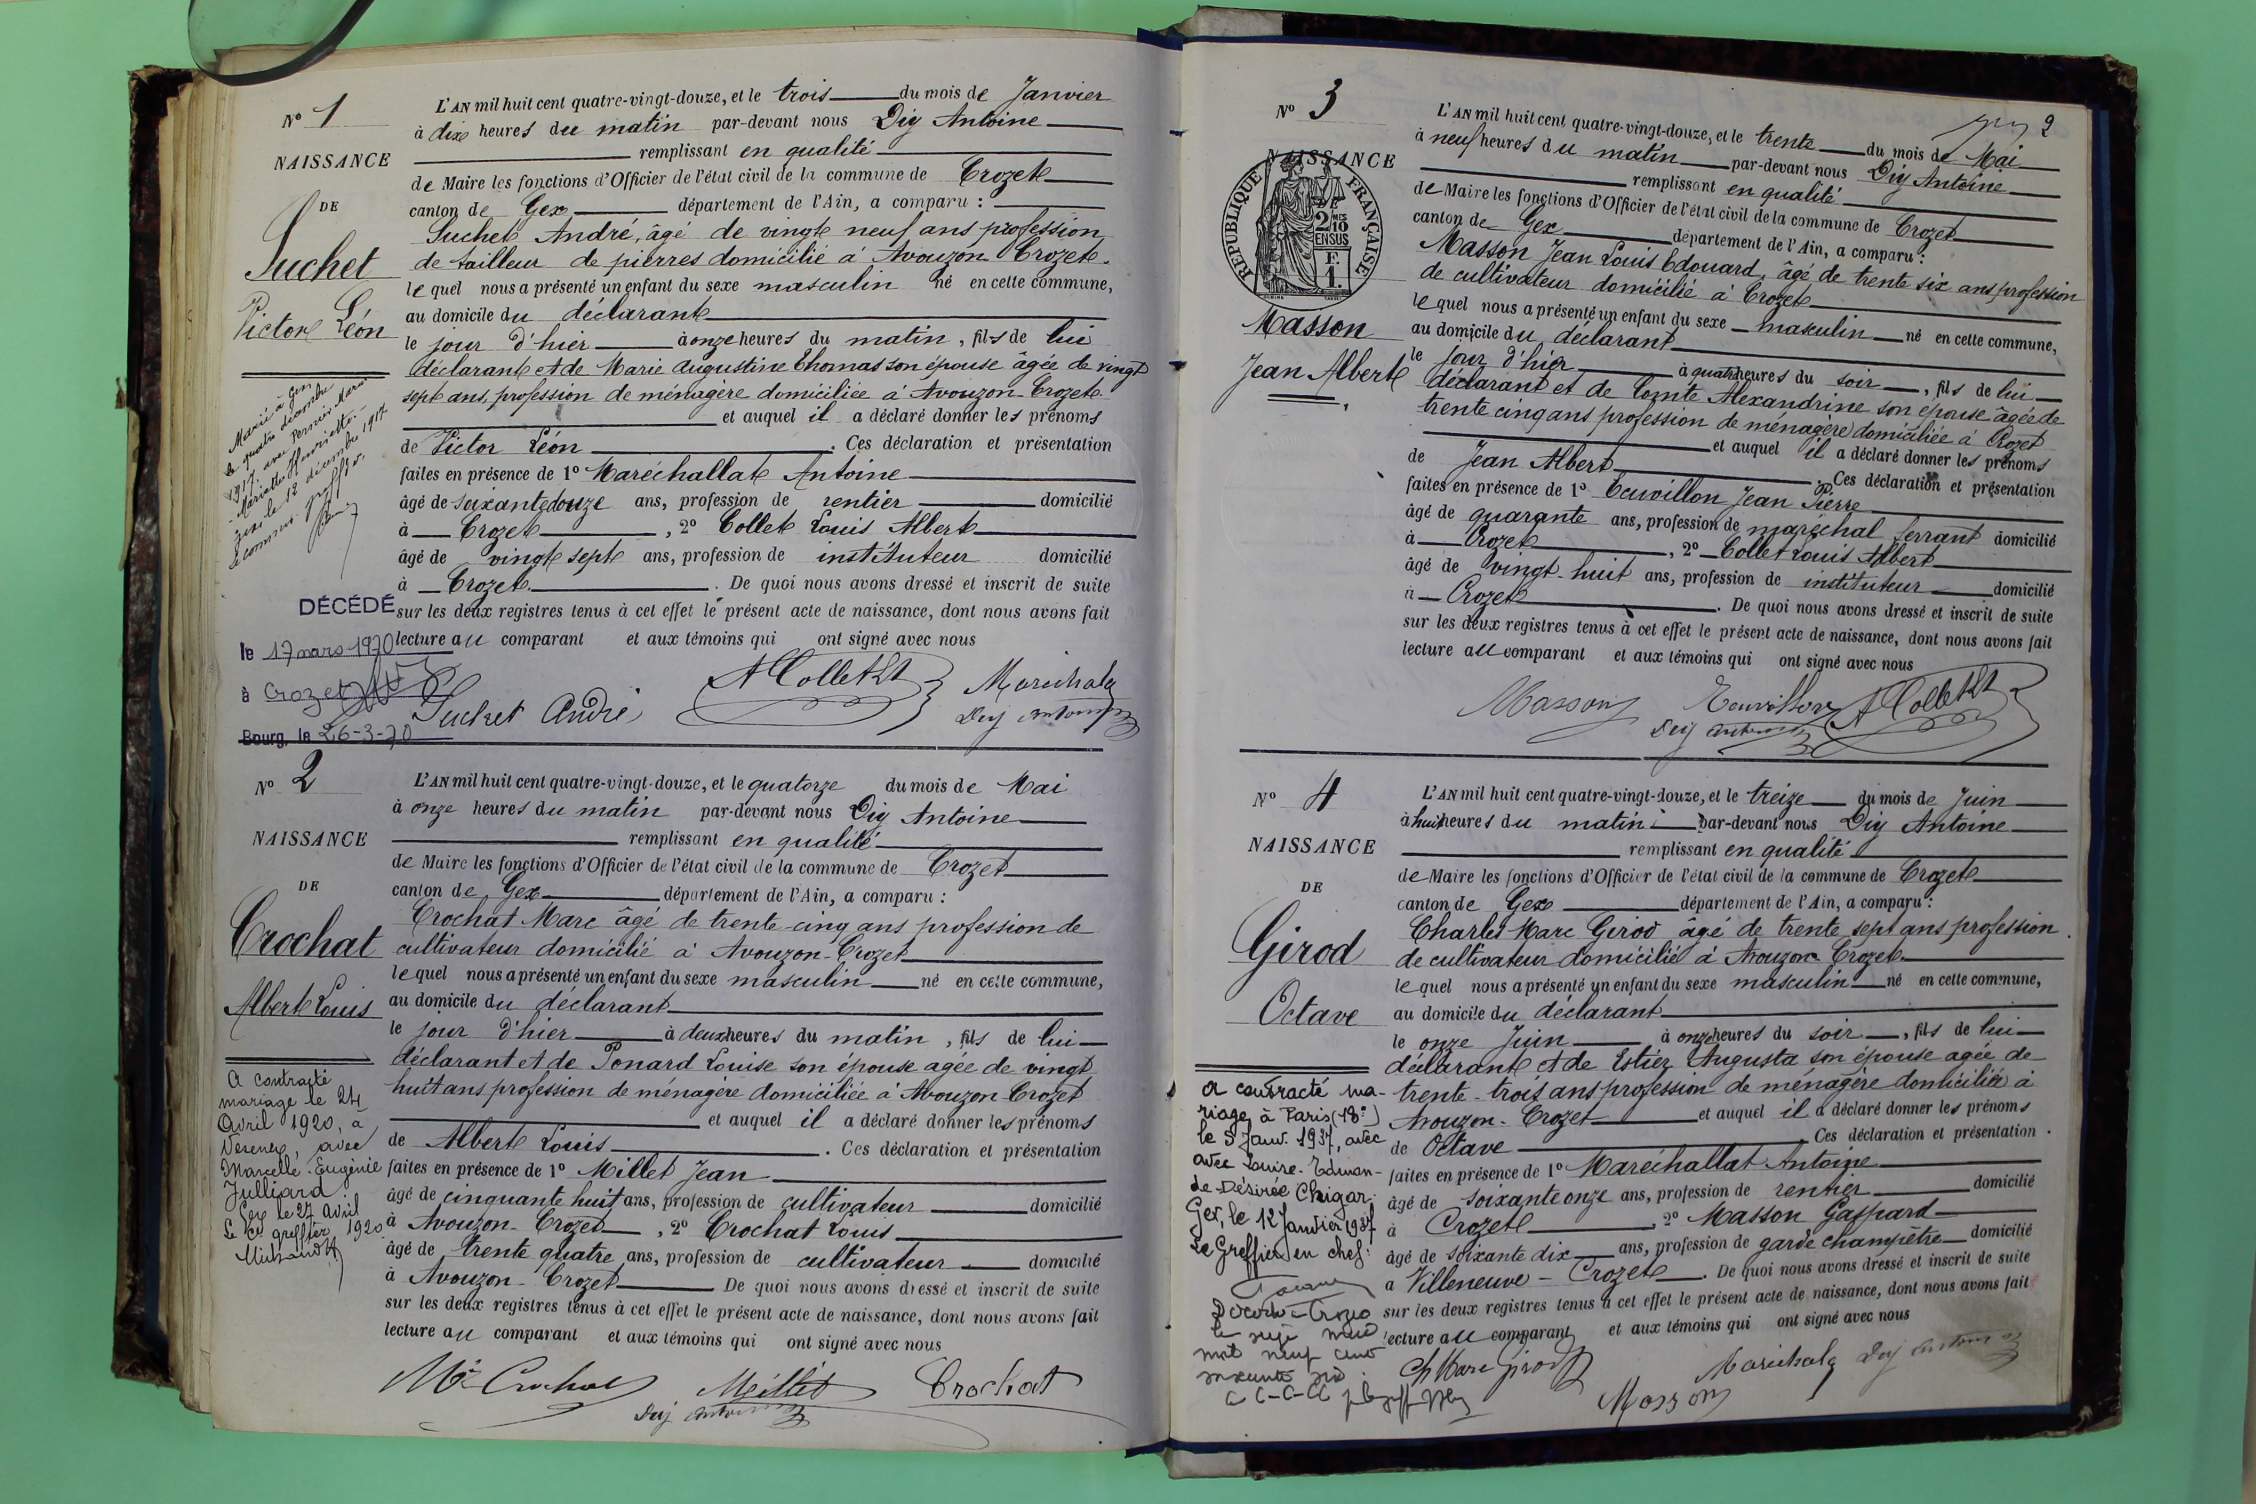 N° 1
NAISSANCE
DE
Suchet
Victor Léon
Marié à Gex
le quatre décembre
1917 avec Perrier Marie
Mariette Henriette
Gex le 12 décembre 1917.
DÉCÉDÉ
le 17 mars 1970
à Crozet
Bourg, le 26-3-70
L'AN mil huit cent quatre-vingt-douze, et le trois du mois de Janvier
à dix heures du matin par-devant nous Diy Antoine
remplissant en qualité
de Maire les fonctions d'Officier de l'état civil de la commune de Crozet
canton de Gex département de l'Ain, a comparu :
Suchet André, âgé de vingt neuf ans profession
de tailleur de pierres domicilié à Avouzon Crozet.
lequel nous a présenté un enfant du sexe masculin né en cette commune,
au domicile du déclarant
le jour d'hier à onze heures du matin, fils de lui
déclarant et de Marie Augustine Thomas son épouse âgée de vingt
sept ans, profession de ménagère domiciliée à Avouzon-Crozet
et auquel il a déclaré donner les prénoms
de Victor Léon . Ces déclaration et présentation
faites en présence de 1° Maréchallat Antoine
âgé de soixante douze ans, profession de rentier domicilié
à Crozet , 2° Collet Louis Albert
âgé de vingt sept ans, profession de instituteur domicilié
à Crozet . De quoi nous avons dressé et inscrit de suite
sur les deux registres tenus à cet effet le présent acte de naissance, dont nous avons fait
lecture au comparant et aux témoins qui ont signé avec nous
Suchet André A Collet Maréchala
Diy Antoine
N° 2
NAISSANCE
DE
Crochat
Albert Louis
A contracté
mariage le 24
Avril 1920, à
avec
Marcelle Eugénie
Julliard
Gex le 27 Avril
Le Cs greffier 1920
L'AN mil huit cent quatre-vingt-douze, et le quatorze du mois de Mai
à onze heures du matin par-devant nous Diy Antoine
remplissant en qualité
de Maire les fonctions d'Officier de l'état civil de la commune de Crozet
canton de Gex département de l'Ain, a comparu :
Crochat Marc âgé de trente-cinq ans profession de
cultivateur domicilié à Avouzon-Crozet
lequel nous a présenté un enfant du sexe masculin né en cette commune,
au domicile du déclarant
le jour d'hier à deux heures du matin, fils de lui
déclarant et de Ponard Louise son épouse agée de vingt
huit ans profession de ménagère domiciliée à Avouzon-Crozet
et auquel il a déclaré donner les prénoms
de Albert Louis . Ces déclaration et présentation
faites en présence de 1° Millet Jean
âgé de cinquante huit ans, profession de cultivateur domicilié
à Avouzon-Crozet , 2° Crochat Louis
âgé de trente quatre ans, profession de cultivateur domicilié
à Avouzon-Crozet De quoi nous avons dressé et inscrit de suite
sur les deux registres tenus à cet effet le présent acte de naissance, dont nous avons fait
lecture au comparant et aux témoins qui ont signé avec nous
Mc Crochat Meillet Crochat
Diy Antoine
2
N° 3
NAISSANCE
RÉPUBLIQUE FRANÇAISE
DE
2 MES
10
EN SUS
F.
1.
Masson
Jean Albert
L'AN mil huit cent quatre-vingt-douze, et le trente du mois de Mai
à neuf heures du matin par-devant nous Diy Antoine
remplissant en qualité
de Maire les fonctions d'Officier de l'état civil de la commune de Crozet
canton de Gex département de l'Ain, a comparu :
Masson Jean Louis Edouard, âgé de trente six ans profession
de cultivateur domicilié à Crozet
lequel nous a présenté un enfant du sexe masculin né en cette commune,
au domicile du déclarant
le jour d'hier à quatre heures du soir, fils de lui
déclarant et de Comte Alexandrine son épouse âgée de
trente cinq ans profession de ménagère domiciliée à Crozet
et auquel il a déclaré donner les prénoms
de Jean Albert . Ces déclaration et présentation
faites en présence de 1° Teuvillon Jean Pierre
âgé de quarante ans, profession de maréchal ferrant domicilié
à Crozet , 2° Collet Louis Albert
âgé de vingt-huit ans, profession de instituteur domicilié
à Crozet . De quoi nous avons dressé et inscrit de suite
sur les deux registres tenus à cet effet le présent acte de naissance, dont nous avons fait
lecture au comparant et aux témoins qui ont signé avec nous
Masson Teuvillon A Collet
Diy Antoine
N° 4
NAISSANCE
DE
Girod
Octave
A contracté ma-
riage à Paris (18e)
le 5 Janv. 1937, avec
avec Louise-Edman-
de-Désirée Chigar.
Gex, le 12 Janvier 1937
Le Greffier en chef :
Décédé à Crozet
mil neuf cent
soixante
L'AN mil huit cent quatre-vingt-douze, et le treize du mois de Juin
à huit heures du matin par-devant nous Diy Antoine
remplissant en qualité
de Maire les fonctions d'Officier de l'état civil de la commune de Crozet
canton de Gex département de l'Ain, a comparu :
Charles Marc Girod âgé de trente sept ans profession
de cultivateur domicilié à Avouzon-Crozet
lequel nous a présenté un enfant du sexe masculin né en cette commune,
au domicile du déclarant
le onze Juin à onze heures du soir, fils de lui
déclarant et de Estier Augusta son épouse agée de
trente-trois ans profession de ménagère domiciliée à
Avouzon-Crozet et auquel il a déclaré donner les prénoms
de Octave Ces déclaration et présentation
faites en présence de 1° Maréchallat Antoine
âgé de soixante onze ans, profession de rentier domicilié
à Crozet , 2° Masson Gaspard
âgé de soixante dix ans, profession de garde champêtre domicilié
a Villeneuve-Crozet . De quoi nous avons dressé et inscrit de suite
sur les deux registres tenus à cet effet le présent acte de naissance, dont nous avons fait
lecture au comparant et aux témoins qui ont signé avec nous
Ch Marc Girod Maréchala Diy Antoine
Masson